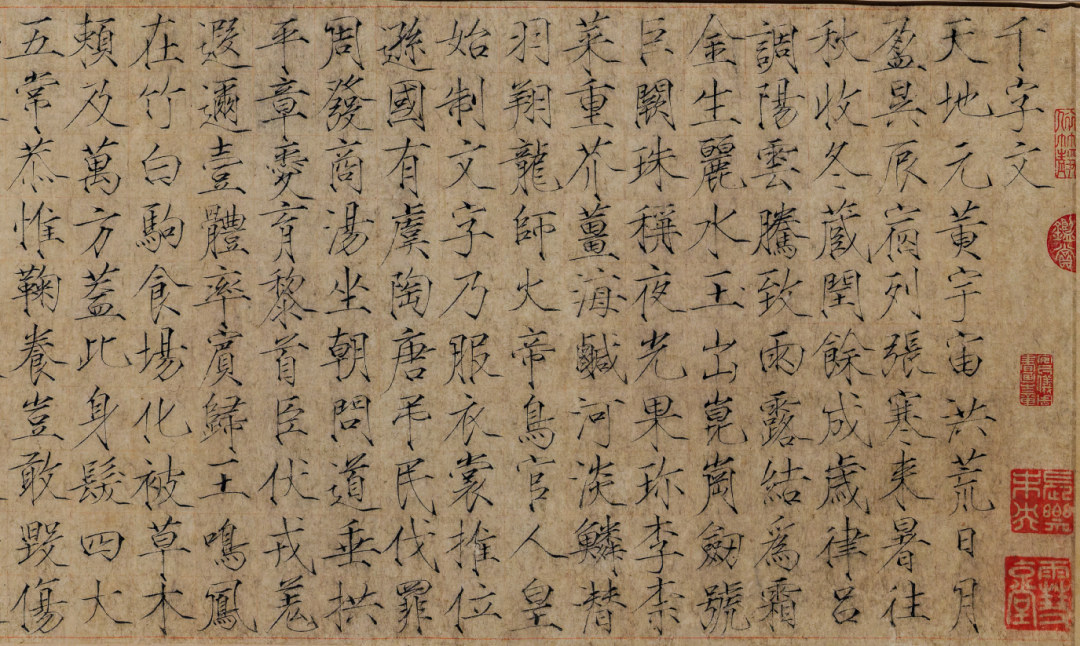 千字文
天地元黃宇宙洪荒日月
盈昃辰宿列張寒來暑往
秋收冬藏閏餘成歲律呂
調陽雲騰致雨露結爲霜
金生麗水玉出崑崗劒號
巨闕珠稱夜光果珎李柰
菜重芥薑海鹹河淡鱗潛
羽翔龍師火帝鳥官人皇
始制文字乃服衣裳推位
遜國有虞陶唐弔民伐罪
周發商湯坐朝問道垂拱
平章愛育黎首臣伏戎羌
遐邇壹體率賓歸王鳴鳳
在竹白駒食場化被草木
賴及萬方蓋此身髮四大
五常恭惟鞠養豈敢毀傷
鑑賞